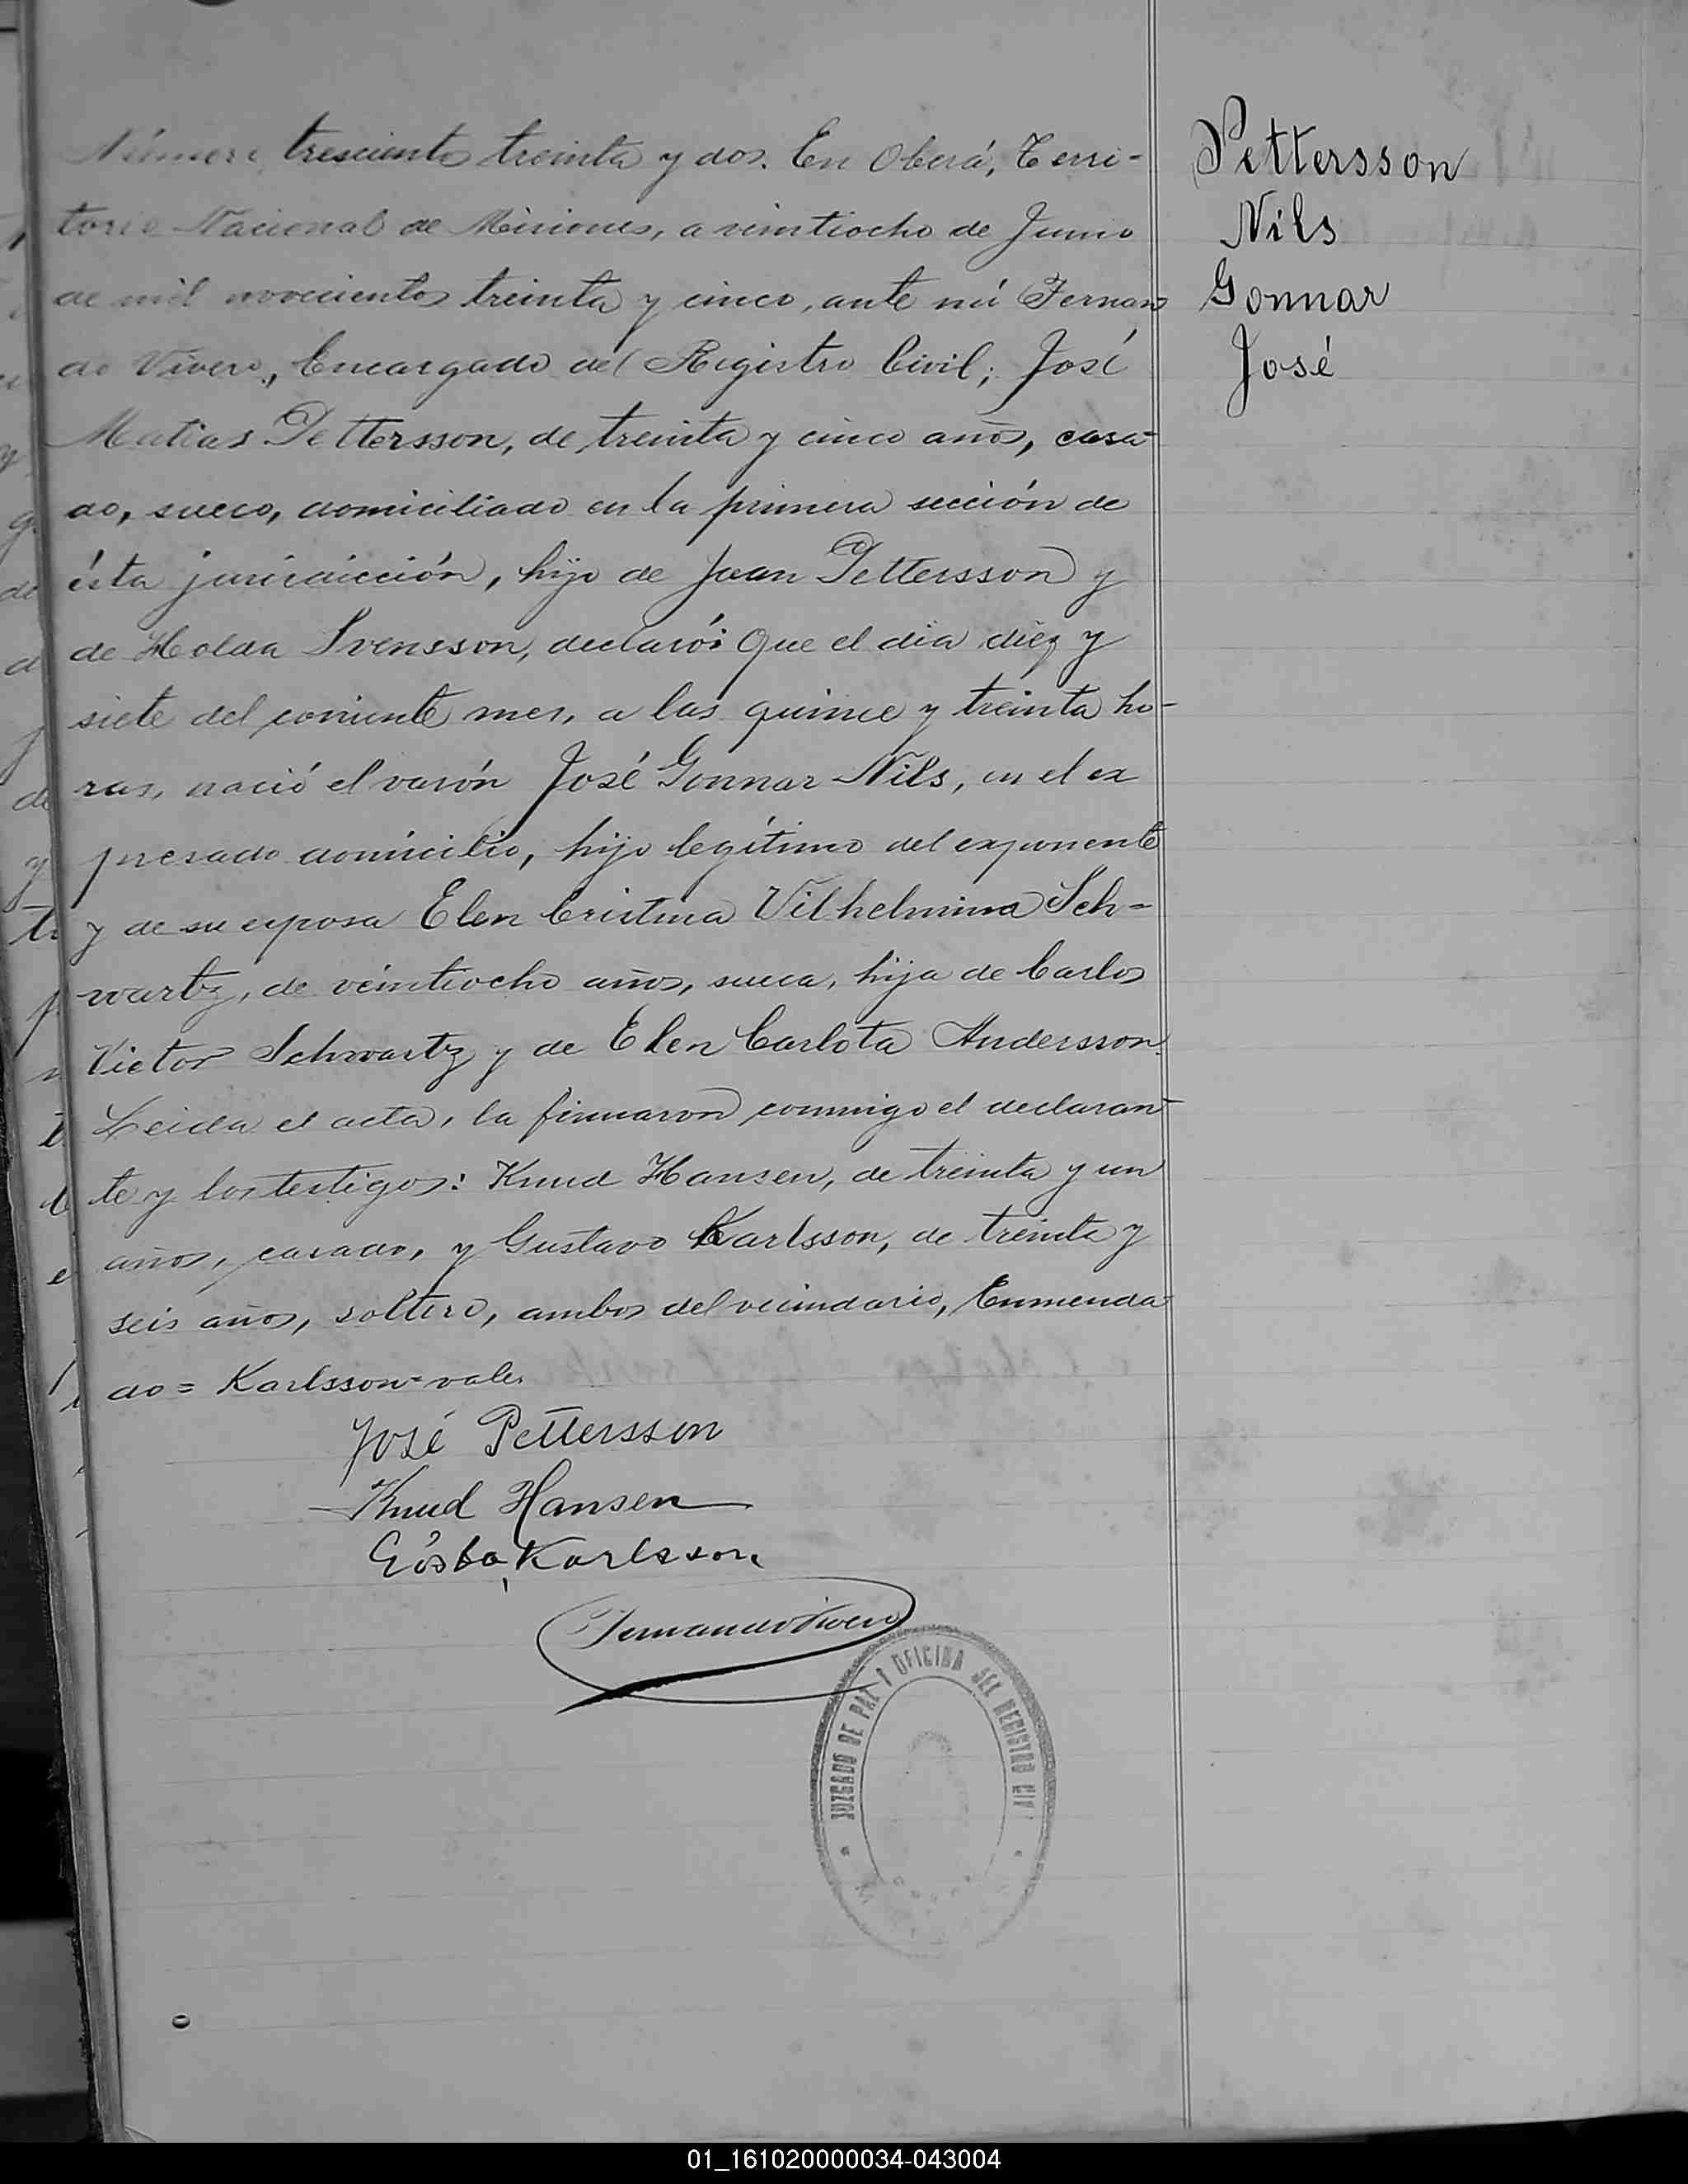 Número tresciento treinta y dos. En Oberá, Terri-
torio Nacional de Misiones, a veintiocho de Junio
de mil novecientos treinta y cinco, ante mí Fernan
do Vivero, Encargado del Registro Civil; José
Matias Pettersson, de treinta y cinco años, casa-
do, sueco, domiciliado en la primera sección de
ésta jurisdicción, hijo de Juan Pettersson y
de Holda Svensson, declaró: Que el dia diez y
siete del corriente mes, a las quince y treinta ho-
ras, nació el varón José Gonnar Nils, en el ex
presado domicilio, hijo legítimo del exponente
y de su esposa Elen Cristina Vilhelmina Sch-
wartz, de veintiocho años, sueca, hija de Carlos
Victor Schwartz y de Elen Carlota Andersson.
Leida el acta, la firmaron conmigo el declaran-
te y los testigos: Knud Hansen, de treinta y un
años, casado, y Gustavo Karlsson, de treinta y
seis años, soltero, ambos del vecindario, Enmenda-
do = Karlsson = vale.
José Pettersson
Knud Hansen
Gösta Karlsson
Fernando Vivero
JUZGADO DE PAZ Y OFICINA DEL REGISTRO CIV
Pettersson
Nils
Gonnar
José
01_161020000034-043004